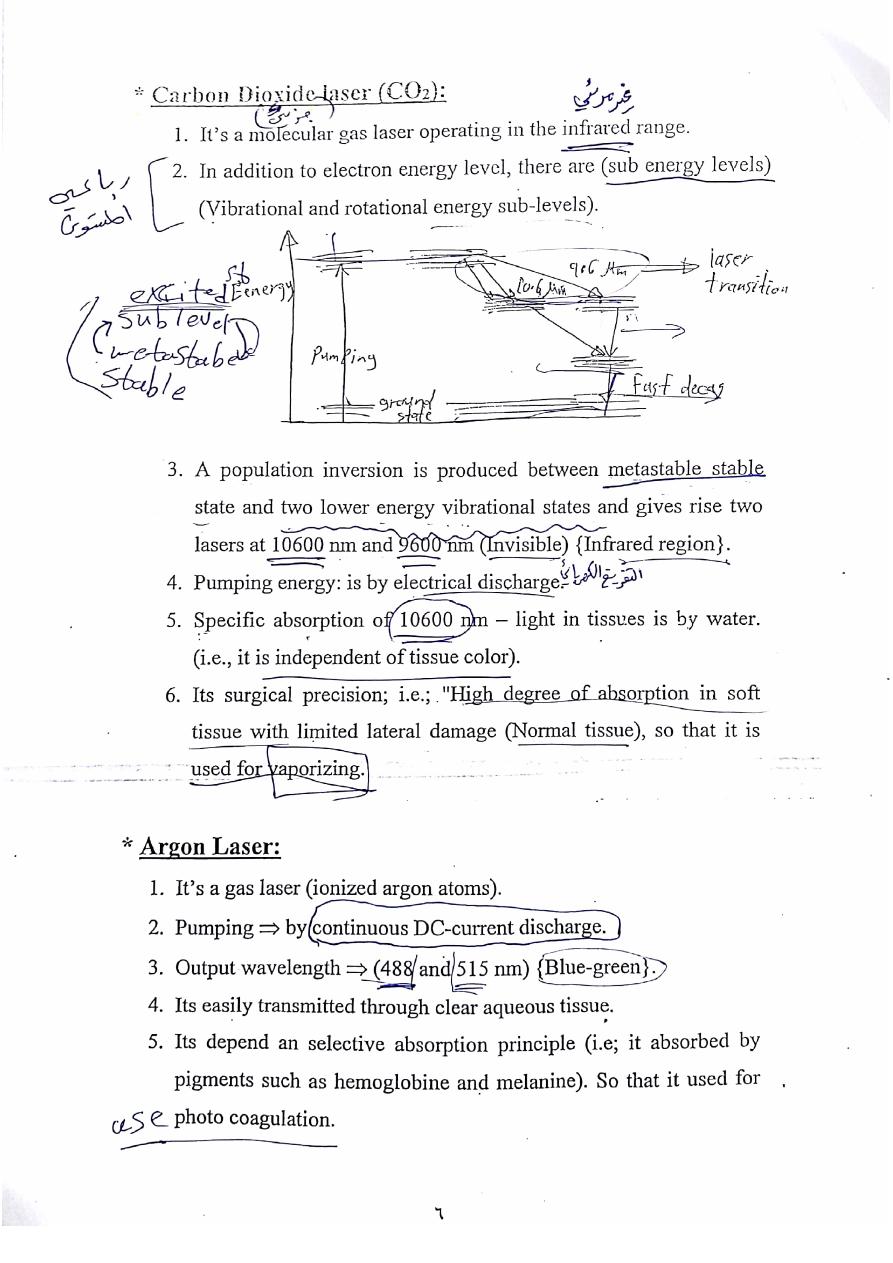 * Carbon Dioxide laser (CO2):
غير مرئي
1. It's a molecular gas laser operating in the infrared range.
2. In addition to electron energy level, there are (sub energy levels)
رباعية
المستوى
(Vibrational and rotational energy sub-levels).
9.6 μm
laser
transition
10.6 μm
Eenergy
excited st
sublevel
metastabel
stable
Pumping
Fast decay
ground
state
3. A population inversion is produced between metastable stable
state and two lower energy vibrational states and gives rise two
lasers at 10600 nm and 9600 nm (Invisible) {Infrared region}.
4. Pumping energy: is by electrical discharge. التفريغ الكهربائي
5. Specific absorption of 10600 nm – light in tissues is by water.
(i.e., it is independent of tissue color).
6. Its surgical precision; i.e.; "High degree of absorption in soft
tissue with limited lateral damage (Normal tissue), so that it is
used for vaporizing.
* Argon Laser:
1. It's a gas laser (ionized argon atoms).
2. Pumping ⇒ by continuous DC-current discharge.
3. Output wavelength ⇒ (488 and 515 nm) {Blue-green}.
4. Its easily transmitted through clear aqueous tissue.
5. Its depend an selective absorption principle (i.e; it absorbed by
pigments such as hemoglobine and melanine). So that it used for
use photo coagulation.
٦